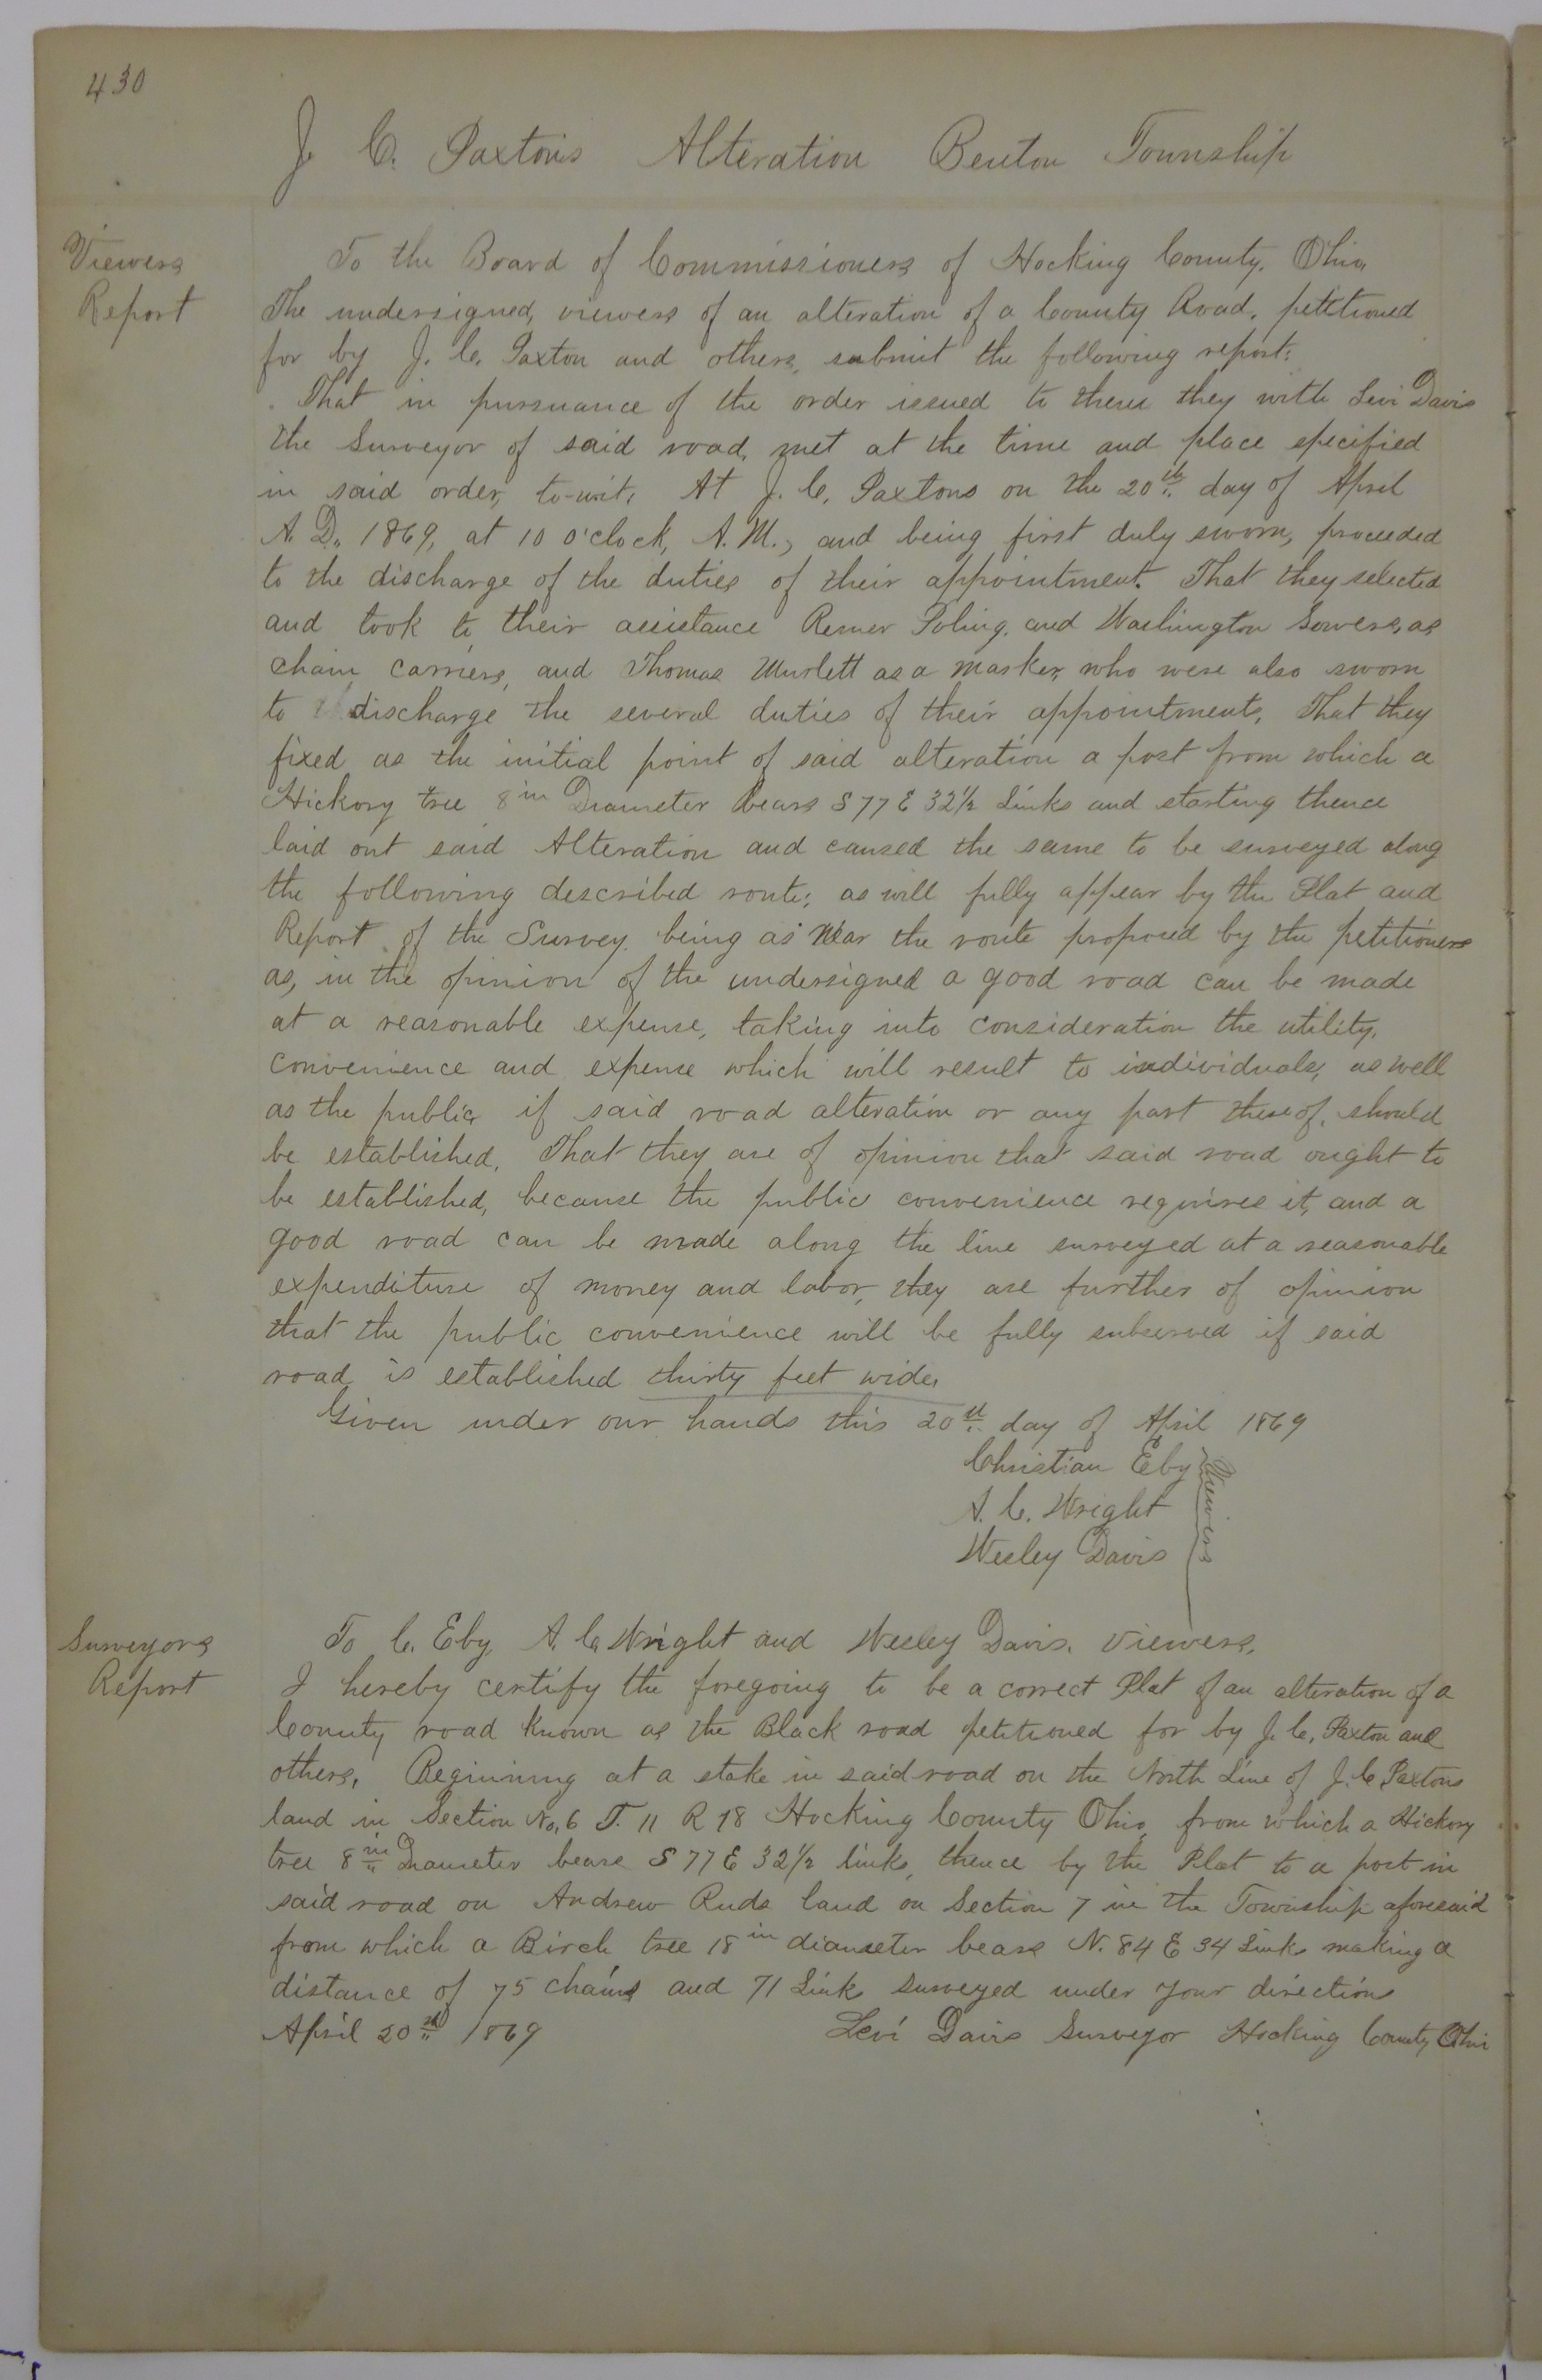 430
J. C. Paxton's Alteration Benton Township
Viewers
Report
To the Board of Commissioners of Hocking County, Ohio,
The undersigned, viewers of an alteration of a County Road, petitioned
for by J. C. Paxton and others, submit the following report:
That in pursuance of the order issued to them they with Levi Davis
the Surveyor of said road, met at the time and place specified
in said order, to-wit, At J. C. Paxtons on the 20th day of April
A. D. 1869, at 10 o'clock, A. M., and being first duly sworn, proceeded
to the discharge of the duties of their appointment. That they selected
and took to their assistance Remer Poling, and Washington Sowers, as
chain carriers, and Thomas as a marker, who were also sworn
to discharge the several duties of their appointments, That they
fixed as the initial point of said alteration a post from which a
Hickory tree 8 in Diameter bears S 77 E 32½ Links and starting thence
laid out said Alteration and caused the same to be surveyed along
the following described route; as will fully appear by the Plat and
Report of the Survey. being as Near the route proposed by the petitioners
as, in the opinion of the undersigned a good road can be made
at a reasonable expense, taking into consideration the utility,
convenience and expense which will result to individuals, as well
as the public, if said road alteration or any part thereof, should
be established, That they are of opinion that said road ought to
be established, because the public convenience requires it, and a
good road can be made along the line surveyed at a reasonable
expenditure of money and labor, they are further of opinion
that the public convenience will be fully subserved if said
road is established thirty feet wide,
Given under our hands this 20th day of April 1869
Christian Eby
A. C. Wright
Wesley Davis
Viewers
Surveyors
Report
To C. Eby, A. C. Wright and Wesley Davis, Viewers,
I hereby certify the foregoing to be a correct Plat of an alteration of a
County road Known as the Black road petitioned for by J. C. Paxton and
others, Beginning at a stake in said road on the North Line of J. C. Paxtons
land in Section No. 6 T. 11 R 18 Hocking County Ohio, from which a Hickory
tree 8 in Diameter bears S 77 E 32½ links, thence by the Plat to a post in
said road on Andrew Ruds land on Section 7 in the Township aforesaid
from which a Birch tree 18 in diameter bears N. 84 E 34 Links making a
distance of 75 chains and 71 Links surveyed under your directions
April 20th 1869 Levi Davis Surveyor Hocking County Ohio